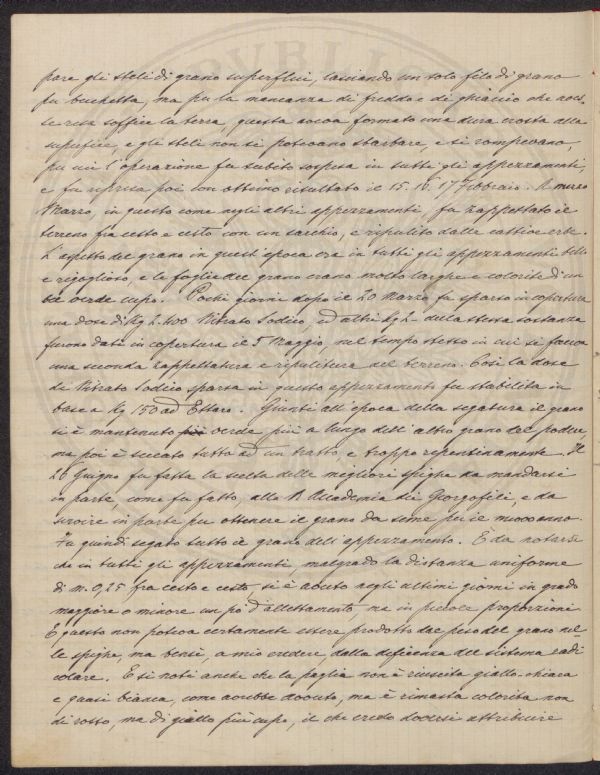 PVBLIC
pare gli steli di grano superflui, lasciando un solo filo di grano
per buchetta, ma per la mancanza di freddo e di ghiaccio che aves-
se resa soffice la terra, questa aveva formato una dura crosta alla
superficie, e gli steli non si potevano sbarbare, e si rompevano,
per cui l'operazione fu subito sospesa in tutti gli appezzamenti,
e fu ripresa poi con ottimo risultato il 15. 16. 17 Febbraio. A mezzo
Marzo, in questo come negli altri appezzamenti, fu zappettato il
terreno fra cesto e cesto con un sarchio, e ripulito dalle cattive erbe.
L'aspetto del grano in quest'epoca era in tutti gli appezzamenti bello
e rigoglioso, e le foglie del grano erano molto larghe e colorite di un
bel verde cupo. Pochi giorni dopo il 20 Marzo fu sparso in copertura
una dose di Kg 2.400 Nitrato Sodico, ed altri Kg 2 – della stessa sostanza
furono dati in copertura il 5 Maggio, nel tempo stesso in cui si faceva
una seconda zappettatura e ripulitura del terreno. Così la dose
di Nitrato Sodico sparsa in questo appezzamento fu stabilita in
base a Kg 150 ad Ettaro. Giunti all'epoca della segatura il grano
si è mantenuto verde più a lungo dell'altro grano del podere
ma poi è seccato tutto ad un tratto, e troppo repentinamente. Il
26 Giugno fu fatta la scelta delle migliori spighe da mandarsi
in parte, come fu fatto, alla R. Accademia dei Georgofili, e da
servire in parte per ottenere il grano da seme per il nuovo anno.
Fu quindi segato tutto il grano dell'appezzamento. È da notarsi
che in tutti gli appezzamenti, malgrado la distanza uniforme
di m. 0,25 fra cesto e cesto, si è avuto negli ultimi giorni in grado
maggiore o minore un po' d'allettamento, ma in piccole proporzioni
E questo non poteva certamente essere prodotto dal peso del grano nel-
le spighe, ma bensì, a mio credere dalla deficenza del sistema radi
colare. E si noti anche che la paglia non è riuscita giallo-chiara
e quasi bianca, come avrebbe dovuto, ma è rimasta colorita non
di rosso, ma di giallo più cupo, il che credo doversi attribuire